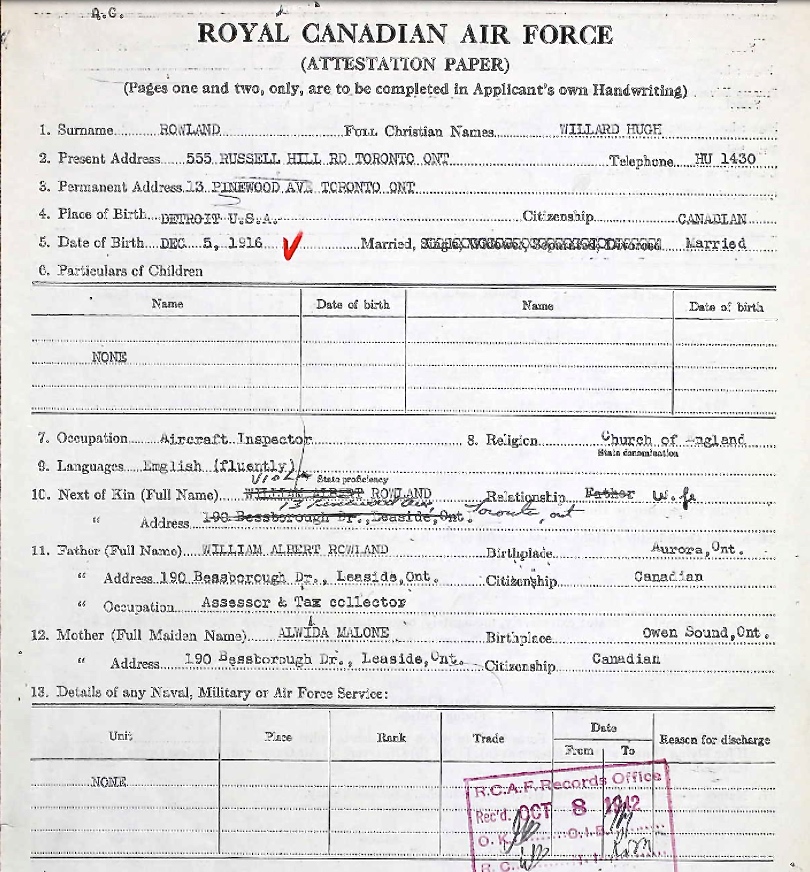 A.G.
ROYAL CANADIAN AIR FORCE
(ATTESTATION PAPER)
(Pages one and two, only, are to be completed in Applicant's own Handwriting)
1. Surname ROWLAND FULL Christian Names WILLARD HUGH
2. Present Address 555 RUSSELL HILL RD TORONTO ONT Telephone HU 1430
3. Permanent Address 13 PINEWOOD AVE TORONTO ONT
4. Place of Birth DETROIT U.S.A. Citizenship CANADIAN
5. Date of Birth DEC 5, 1916 Married, Single, Widower, Separated, Divorced Married
6. Particulars of Children
Name Date of birth Name Date of birth
NONE
7. Occupation Aircraft Inspector 8. Religion Church of England
State denomination
9. Languages English (fluently)
State proficiency
10. Next of Kin (Full Name) WILLIAM ALBERT ROWLAND Relationship Father Wife
13 Pinewood Ave, Toronto, ont
" Address 190 Bessborough Dr., Leaside, Ont.
11. Father (Full Name) WILLIAM ALBERT ROWLAND Birthplace Aurora, Ont.
" Address 190 Bessborough Dr., Leaside, Ont. Citizenship Canadian
" Occupation Assessor & Tax collector
12. Mother (Full Maiden Name) ALWIDA MALONE Birthplace Owen Sound, Ont.
" Address 190 Bessborough Dr., Leaside, Ont. Citizenship Canadian
13. Details of any Naval, Military or Air Force Service:
Unit Place Rank Trade Date Reason for discharge
From To
NONE
R.C.A.F. Records Office
Rec'd. OCT 8 1942
O.K.
R.C.